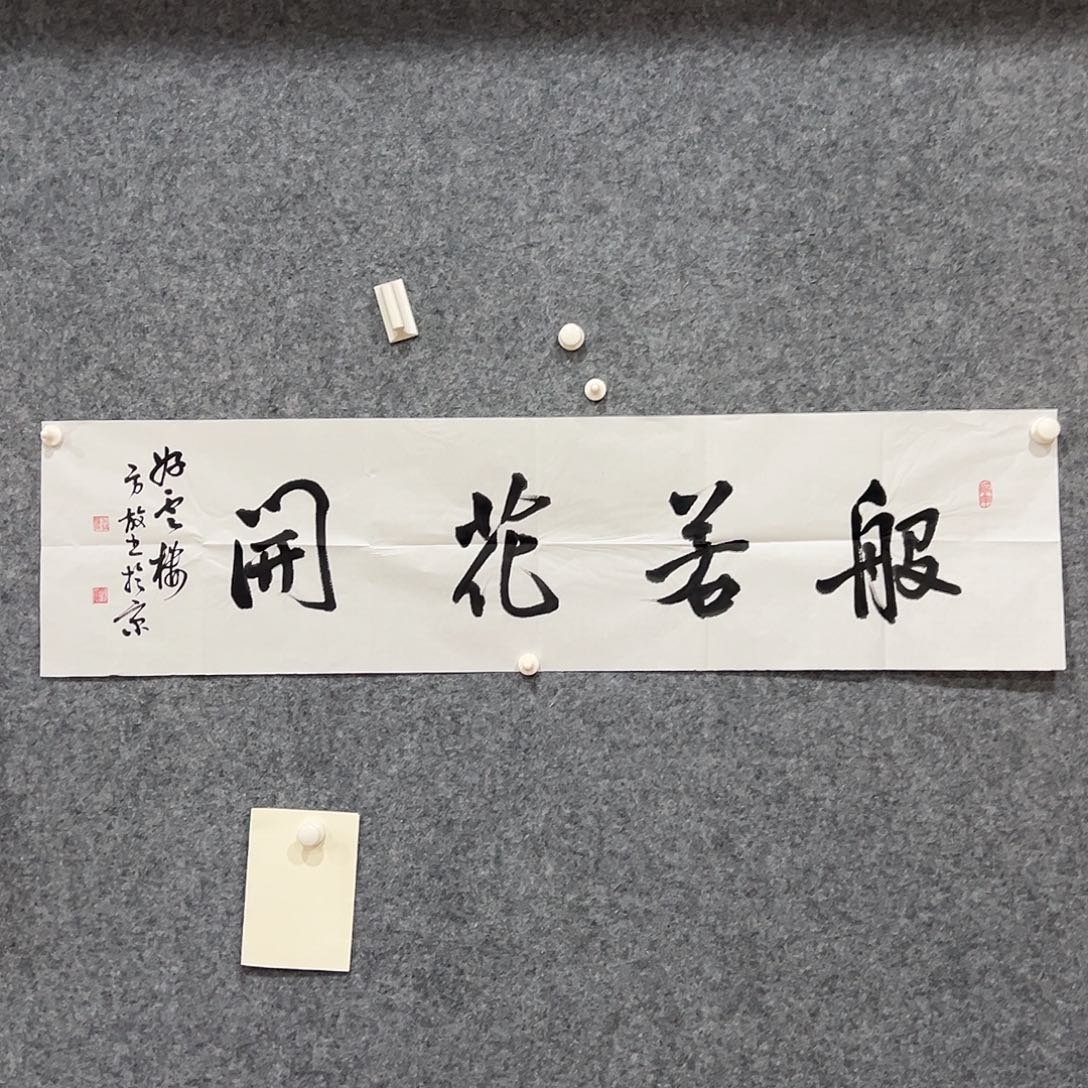 般若花開
好雲樓
方放書於京